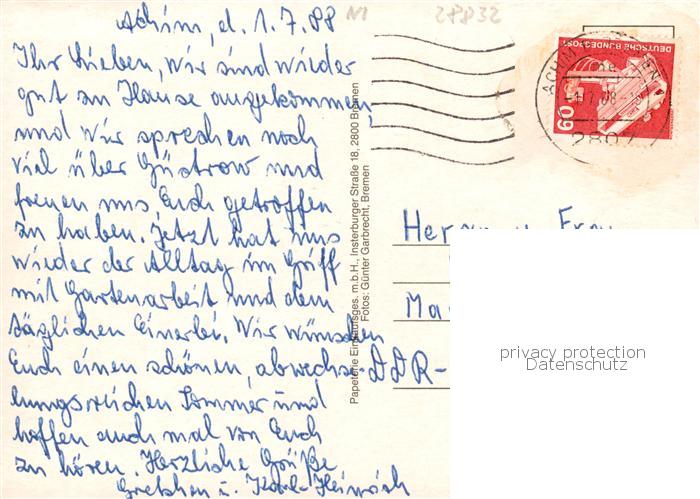 Achim, d. 1.7.88
Ihr Lieben, wir sind wieder
gut zu Hause angekommen
und wir sprechen noch
viel über Güstrow und
freuen uns Euch getroffen
zu haben. Jetzt hat uns
wieder der Alltag im Griff
mit Gartenarbeit und dem
täglichen Einerlei. Wir wünschen
Euch einen schönen, abwechs-
lungsreichen Sommer und
hoffen auch mal von Euch
zu hören. Herzliche Grüße
Gretchen u. Karl-Heinrich
28832
Papeterie Einkaufsges. m.b.H., Insterburger Straße 18, 2800 Bremen
Fotos: Günter Garbrecht, Bremen
DEUTSCHE BUNDESPOST
60
2807
Herrn u. Frau
Ma
DDR-
privacy protection
Datenschutz